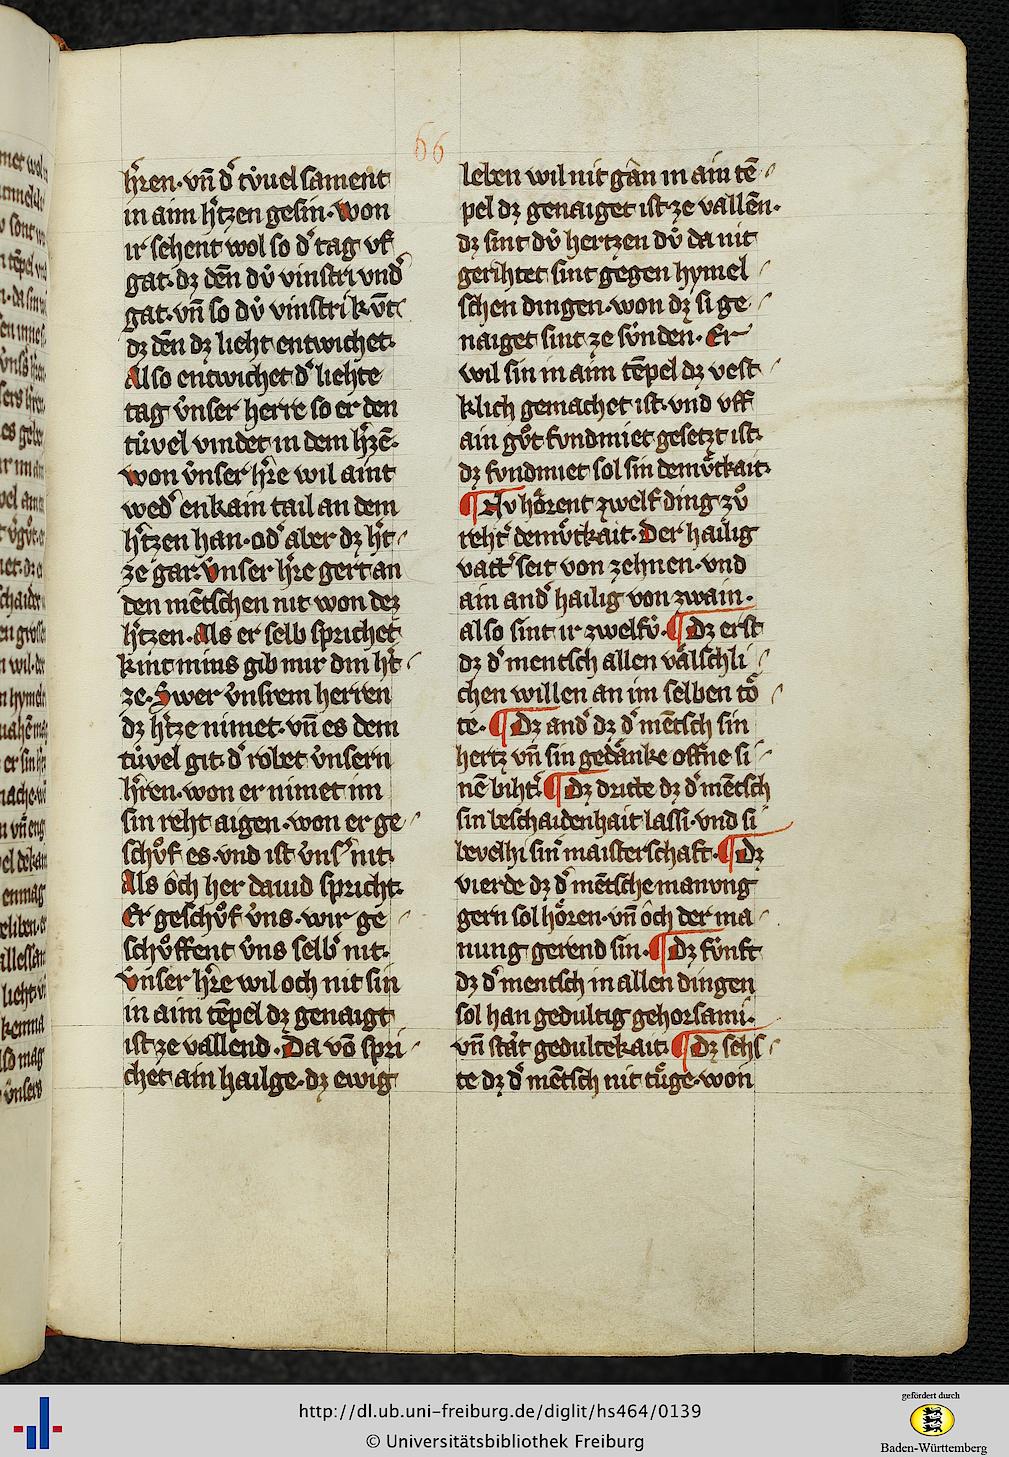 66
hr̄en·vn̄ d͛ tv̍uel sament
in aim h͛tzen gesin·won
ir sehent wol so d͛ tag vf
gat·dz den̄ dv̍ vinstri vnd͛
gat·vn̄ so dv̍ vinstri kv̄t
dz den̄ dz lieht entwichet·
Also entwichet d͛ liehte
tag v̍nser herre so er den
tu̍vel vindet in dem h͛zē·
won v̍nser hr̄e wil aint
wed͛ enkain tail an dem
h͛tzen han·od͛ aber dz h͛t
ze gar·v̍nser hr̄e gert an
den mētschen nit won dez
h͛tzen·Als er selb sprichet
kint minis gib mir din h͛t
ze·Swer v̍nsrem herren
dz h͛tze nimet·vn̄ es dem
tu̍vel git·d͛ robet v̍nsern
hr̄en·won er nimet im
sin reht aigen·won er ge
schv̊f es·vnd ist v̍ns͛ nit·
Als ôch her dauid spricht·
Er geschv̊f v̍ns·wir ge
schv̊ffent v̍ns selb͛ nit·
v̍nser hr̄e wil och nit sin
in aim tēpel dz genaigt
ist ze vallend·Da vō spri
chet ain hailge·dz ewig
leben wil nit gân in ain tē
pel dz genaiget ist·ze vallen̄·
dz sint dv̍ hertzen dv̍ da nit
gerihtet sint gegen hymel
schen dingen·won dz si ge
naiget sint ze su̍nden·Er
wil sin in aim tēpel dz vest
klich gemachet ist·vnd vff
ain gv̊t fvndmiet gesetzt ist·
dz fvndmiet sol sin demv̊tkait·
¶ Nv hôrent zwelf ding zv̊
reht͛ demv̊tkait·Der hailig
vatt͛ seit von zehnen·vnd
ain and͛ hailig von zwain·
also sint ir zwelfv̍·¶ Dz erst
dz d͛ mentsch allen välschli
chen willen an im selben tô
te·¶ Dz and͛ dz d͛ mētsch sin
hertz vn̄ sin gedänke offne si
nē biht͛·¶ Dz dritte dz d͛ mētsch
sin beschaidenhait lassi·vnd si
bevelhi sin͛ maisterschaft·¶ Dz
vierde dz d͛ mētsche manvng
gern sol hôren·vn̄ ôch der ma
nung gerend sin·¶ Dz fv̍nft
dz d͛ mentsch in allen dingen
sol han gedultig gehorsami·
vn̄ stät gedultekait·¶ Dz sehs
te dz d͛ mētsch nit tu̍ge·won
http://dl.ub.uni-freiburg.de/diglit/hs464/0139
© Universitätsbibliothek Freiburg
gefördert durch
Baden-Württemberg